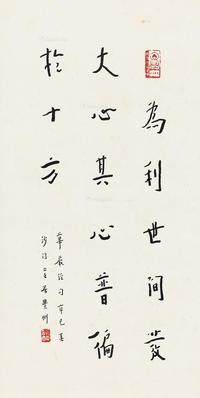 為利世間發
大心其心普徧
於十方
華嚴經句辛巳春
沙門